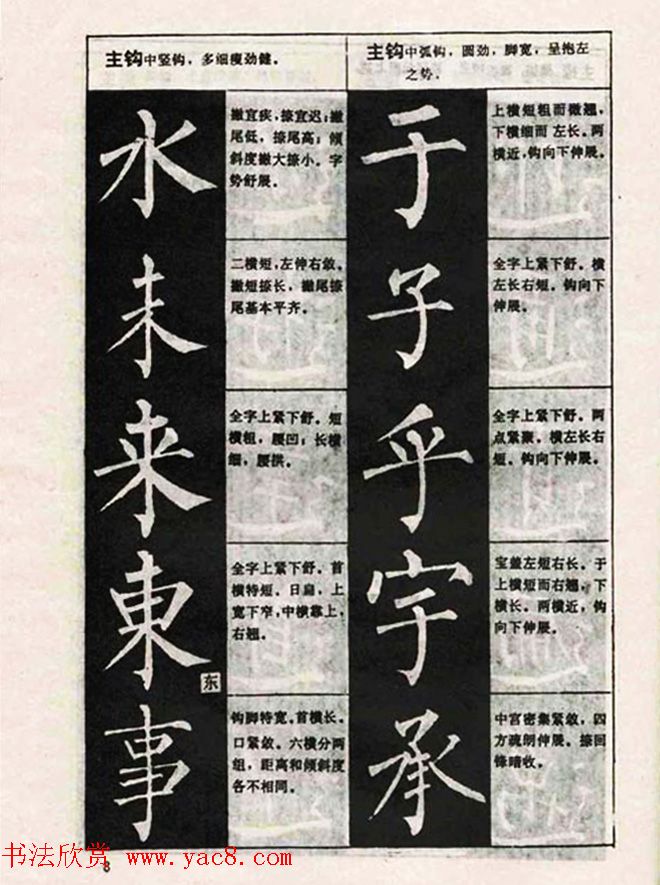 主钩中竖钩，多细瘦劲健。
水
撇宜疾，捺宜迟；撇
尾低，捺尾高；倾
斜度撇大捺小。字
势舒展。
未
二横短，左伸右敛。
撇短捺长，撇尾捺
尾基本平齐。
来
全字上紧下舒。短
横粗，腰凹；长横
细，腰拱。
東
东
全字上紧下舒。首
横特短。日扁，上
宽下窄，中横靠上，
右翘。
事
钩脚特宽。首横长。
口紧敛。六横分两
组，距离和倾斜度
各不相同。
主钩中弧钩，圆劲，脚宽，呈抱左
之势。
于
上横短粗而微翘，
下横细而左长。两
横近，钩向下伸展。
子
全字上紧下舒。横
左长右短。钩向下
伸展。
乎
全字上紧下舒。两
点紧聚。横左长右
短。钩向下伸展。
宇
宝盖左短右长。于
上横短而右翘，下
横长。两横近，钩
向下伸展。
承
中宫密集紧敛，四
方疏朗伸展。捺回
锋暗收。
书法欣赏 www.yac8.com
8